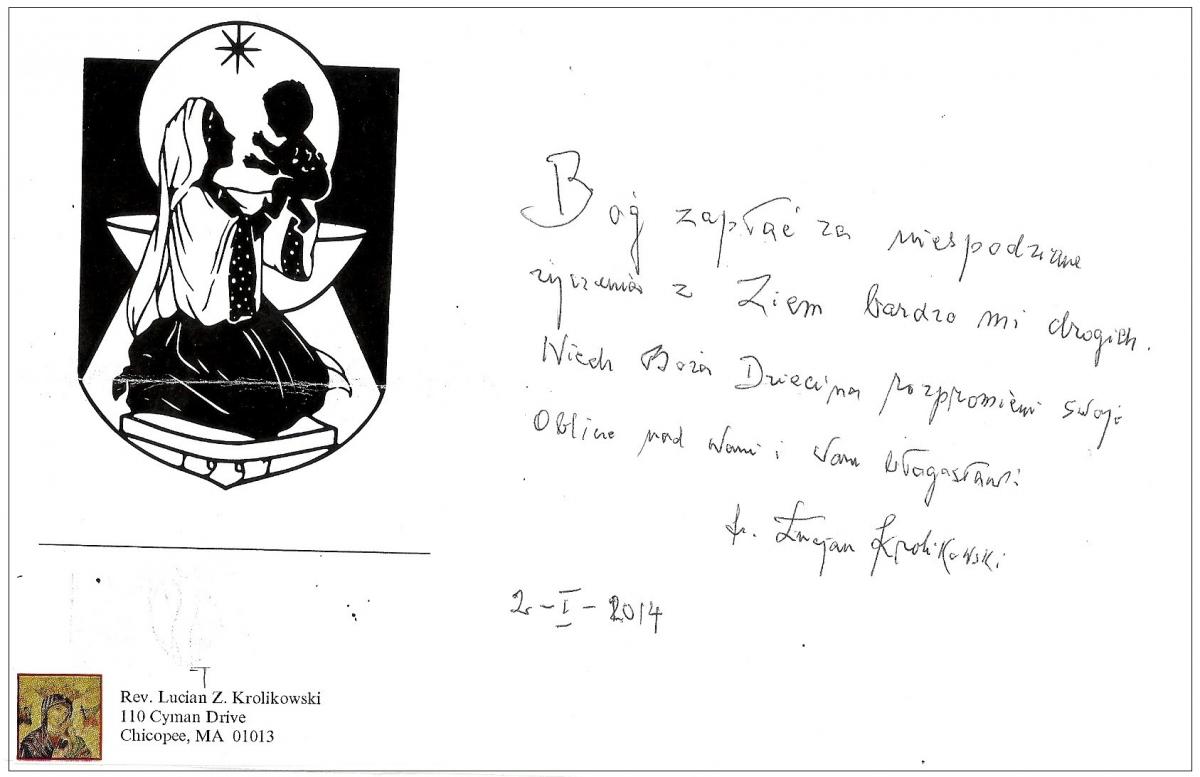 Bóg zapłać za niespodziane
życzenia z Ziem bardzo mi drogich.
Niech Boża Dziecina rozpromieni swoje
Oblicze nad Wami i Wam błogosławi.
Łucjan Królikowski
2-I-2014
Rev. Lucian Z. Krolikowski
110 Cyman Drive
Chicopee, MA 01013